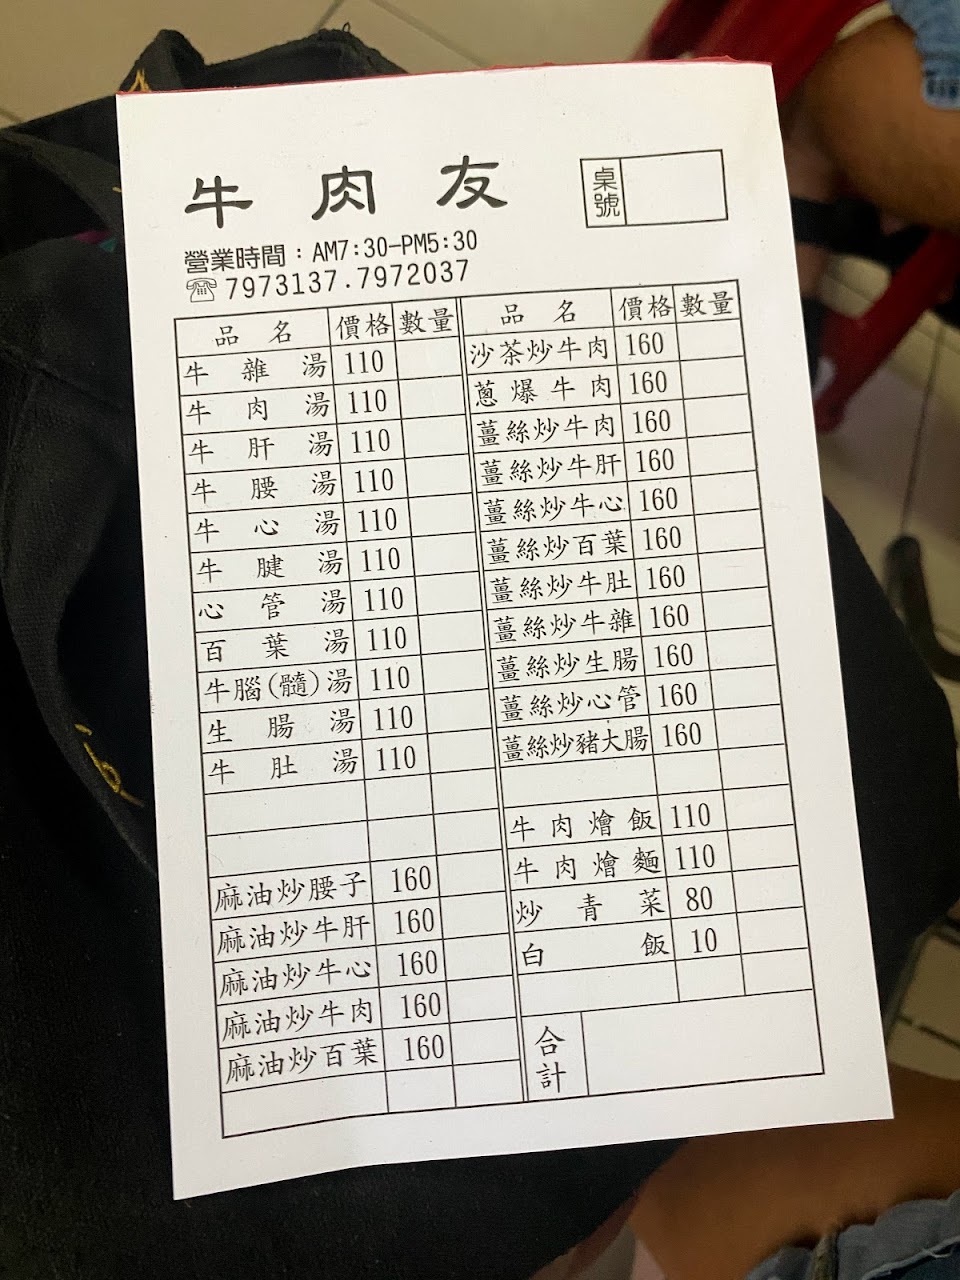 牛肉友
桌號
營業時間：AM7:30-PM5:30
☏7973137.7972037
品名 價格 數量
牛雜湯 110
牛肉湯 110
牛肝湯 110
牛腰湯 110
牛心湯 110
牛腱湯 110
心管湯 110
百葉湯 110
牛腦(髓)湯 110
生腸湯 110
牛肚湯 110
麻油炒腰子 160
麻油炒牛肝 160
麻油炒牛心 160
麻油炒牛肉 160
麻油炒百葉 160
品名 價格 數量
沙茶炒牛肉 160
蔥爆牛肉 160
薑絲炒牛肉 160
薑絲炒牛肝 160
薑絲炒牛心 160
薑絲炒百葉 160
薑絲炒牛肚 160
薑絲炒牛雜 160
薑絲炒生腸 160
薑絲炒心管 160
薑絲炒豬大腸 160
牛肉燴飯 110
牛肉燴麵 110
炒青菜 80
白飯 10
合計